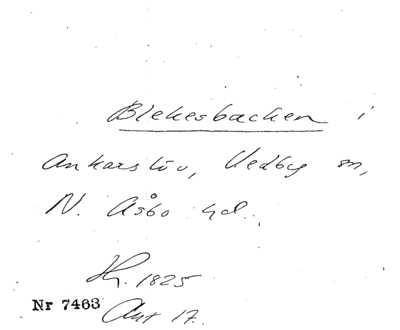 Blekesbacken i
Ankarslöv, Vedby sn,
N. Åsbo hd.
Hy. 1825
Nr 7463
Akt 17.